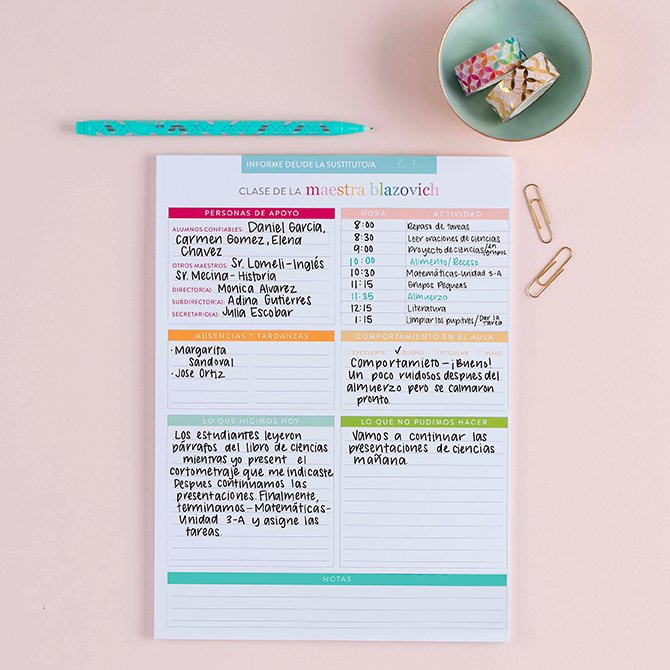 INFORME DEL/DE LA SUSTITUTO/A __/__/__
CLASE DE LA maestra blazovich
PERSONAS DE APOYO
ALUMNOS CONFIABLES: Daniel Garcia,
Carmen Gomez, Elena
Chavez
OTROS MAESTROS: Sr. Lomeli-Inglés
Sr. Mecina-Historia
DIRECTOR(A): Monica Alvarez
SUBDIRECTOR(A): Adina Gutierres
SECRETARIO(A): Julia Escobar
HORA ACTIVIDAD
8:00 Repaso de tareas
8:30 Leer oraciones de ciencias
9:00 Proyecto de ciencias/en grupos
10:00 Alimento/Receso
10:30 Matemáticas-unidad 3-A
11:15 Grupos Pequeños
11:35 Almuerzo
12:15 Literatura
1:15 Limpiar los pupitres/Dar la tarea
AUSENCIAS Y TARDANZAS
·Margarita
Sandoval
·Jose Ortiz
COMPORTAMIENTO EN EL AULA
EXCELENTE ✓BUENO REGULAR MALO
Comportamieto-¡Bueno!
Un poco ruidosos despues del
almuerzo pero se calmaron
pronto.
LO QUE HICIMOS HOY
Los estudiantes leyeron
párrafos del libro de ciencias
mientras yo present el
cortometraje que me indicaste.
Despues continuamos las
presentaciones. Finalmente,
terminamos-Matemáticas-
Unidad 3-A y asigne las
tareas.
LO QUE NO PUDIMOS HACER
Vamos a continuar las
presentaciones de ciencias
mañana.
NOTAS